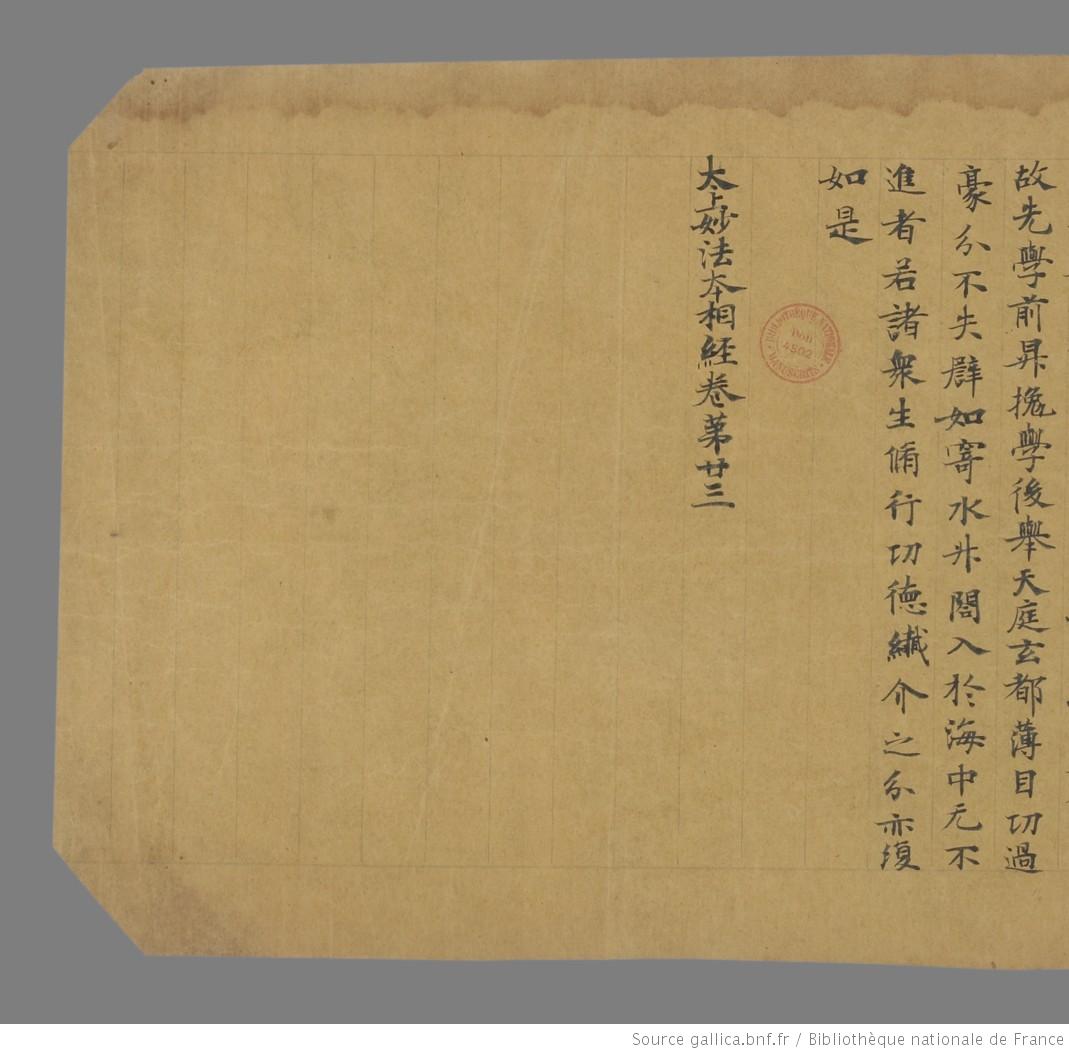 故先學前昇挽學後舉天庭玄都薄目功過
豪分不失辟如寄水升閤入於海中无不
進者若諸衆生脩行功德纎介之分亦復
如是
太上妙法夲相経卷第廿三
BIBLIOTHÈQUE NATIONALE
Don
4502
MANUSCRITS
Source gallica.bnf.fr / Bibliothèque nationale de France